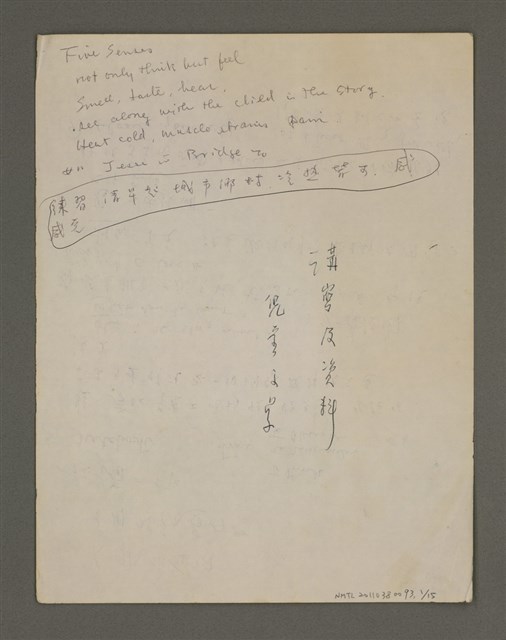 Five Senses
not only think but feel
Smell, taste, hear,
see along with the child in the story.
Heat cold, muscle strains, pain
如 Jess in Bridge To
練習 清早起 城市鄉村 冷熱苦 感
感覺
講習及資料
兒童文學
NMTL 20110380093, 1/15